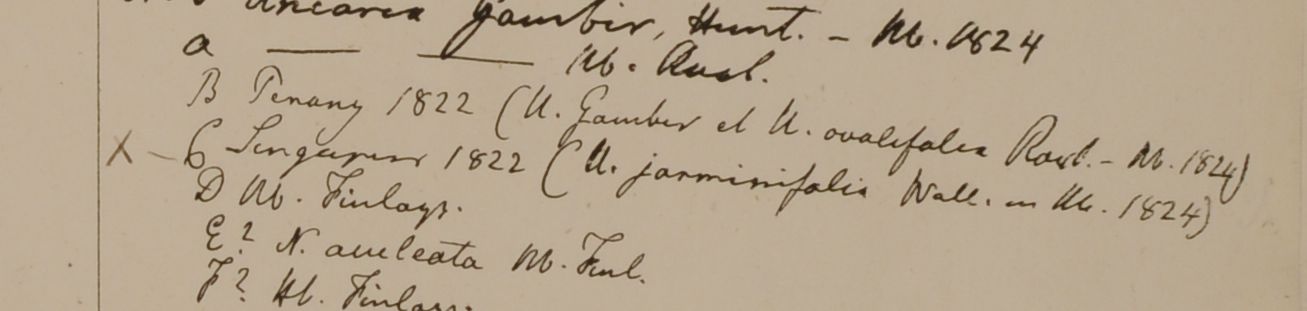 Uncaria Gambir, Hunt. - Hb. 1824
a — — Hb. Roxb.
B Penang 1822 (U. Gambir et U. ovalifolia Roxb. - Hb. 1824)
X - C Singapur 1822 (U. jasminifolia Wall. in Hb. 1824)
D Hb. Finlays.
E? N. aculeata Hb. Finl.
F? Hb. Finlays.